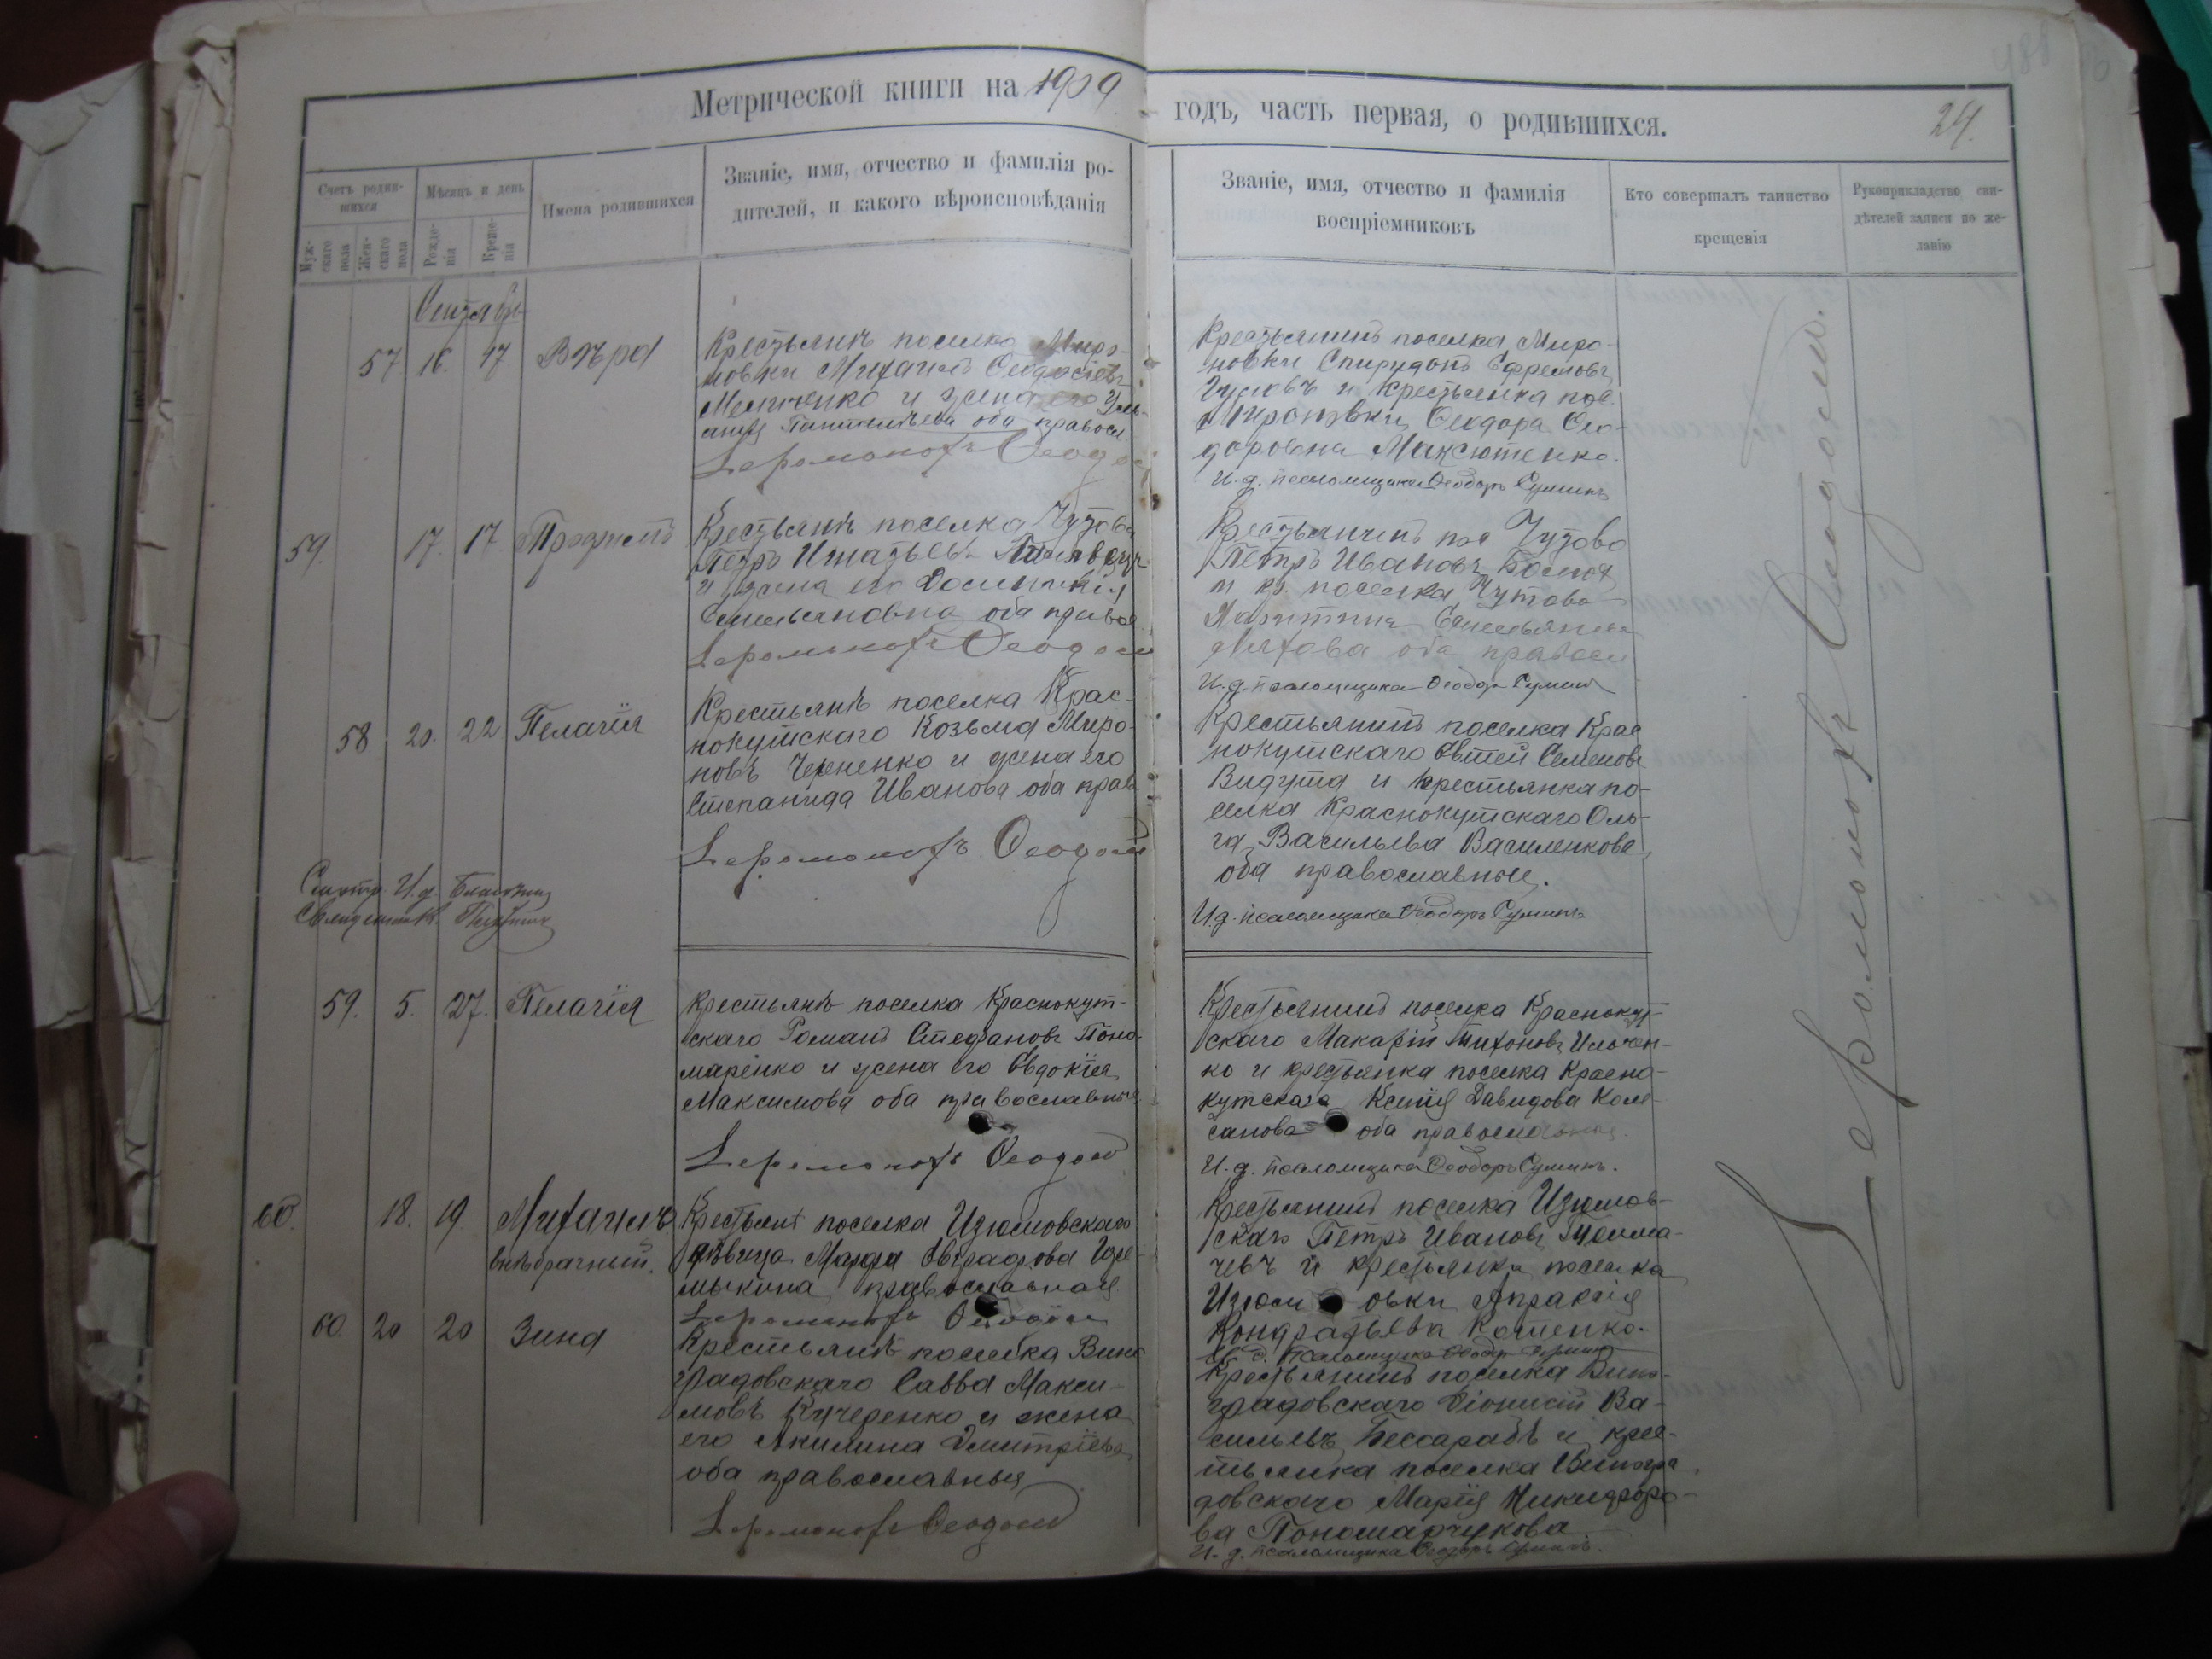 Метрической книги на 1909
годъ, часть первая, о родившихся.
24.
Счетъ родив-
шихся
Мѣсяцъ и день
Имена родившихся
Званіе, имя, отчество и фамилія ро-
дителей, и какого вѣроисповѣданія
Муж-
скаго
пола
Жен-
скаго
пола
Рожде-
нія
Креще-
нія
Званіе, имя, отчество и фамилія
воспріемниковъ
Кто совершалъ таинство
крещенія
Рукоприкладство сви-
дѣтелей записи по же-
ланію
57 16. 17. Вѣра
Крестьянъ поселка Миро-
новки Михаилъ Ѳеодосіевъ
и жена его
оба правосл.
Іеромонахъ Ѳеодосій
Крестьянинъ поселка Миро-
новки Спиридонъ Ефремовъ
и крестьянка пос.
Мироновки Ѳеодора Ѳео-
доровна Максютенко.
И. д. псаломщика Ѳеодоръ Суминъ
59. 17. 17 Трофимъ
Крестьянъ поселка Чутово
Петръ Игнатьевъ
и жена его
Емельяновна оба правос.
Іеромонахъ Ѳеодосій
Крестьянинъ пос. Чутово
Петръ Ивановъ
и кр. поселка Чутово
оба правосл
И. д. псаломщика Ѳеодоръ Суминъ
58 20. 22 Пелагія
Крестьянъ поселка Крас-
нокутскаго Козьма Миро-
новъ Черненко и жена его
Степанида Иванова оба прав
Іеромонахъ Ѳеодосій
Крестьянинъ поселка Крас
нокутскаго Евтей Семеновъ
Видута и крестьянка по-
селка Краснокутскаго Оль-
га Васильева Василенкова
оба православные.
И. д. псаломщика Ѳеодоръ Суминъ
59. 5. 27. Пелагія
Крестьянъ поселка Краснокут-
скаго Романъ Стефановъ Поно-
маренко и жена его Евдокія
Максимова оба православные
Іеромонахъ Ѳеодосій
Крестьянинъ поселка Краснокут-
скаго Макарій Тихоновъ Ильчен-
ко и крестьянка поселка Красно-
кутскаго Ксенія Давидова Коле-
санова оба православные.
И. д. псаломщика Ѳеодоръ Суминъ.
60. 18. 19 Михаилъ
внѣбрачный.
Крестьянъ поселка Изюмовскаго
дѣвица Марфа Евграфова Горе-
мыкина православная
Іеромонахъ Ѳеодосій
Крестьянинъ поселка Изюмов-
скаго Петръ Ивановъ Толма-
чевъ и крестьянка поселка
Изюмовки Апраксія
Кондратьева Котенко.
И. д. псаломщика Ѳеодоръ Суминъ
60. 20 20 Зина
Крестьянъ поселка Вино
градовскаго Савва Макси-
мовъ Кучеренко и жена
его Акилина Дмитріева
оба православныя
Іеромонахъ Ѳеодосій
Крестьянинъ поселка Вино-
градовскаго Діонисій Ва-
сильевъ Бессарабъ и крес-
тьянка поселка Виногра
довскаго Марія Никифоро-
ва Пономарчукова.
И. д. псаломщика Ѳеодоръ Суминъ.
Іеромонахъ Ѳеодосій.